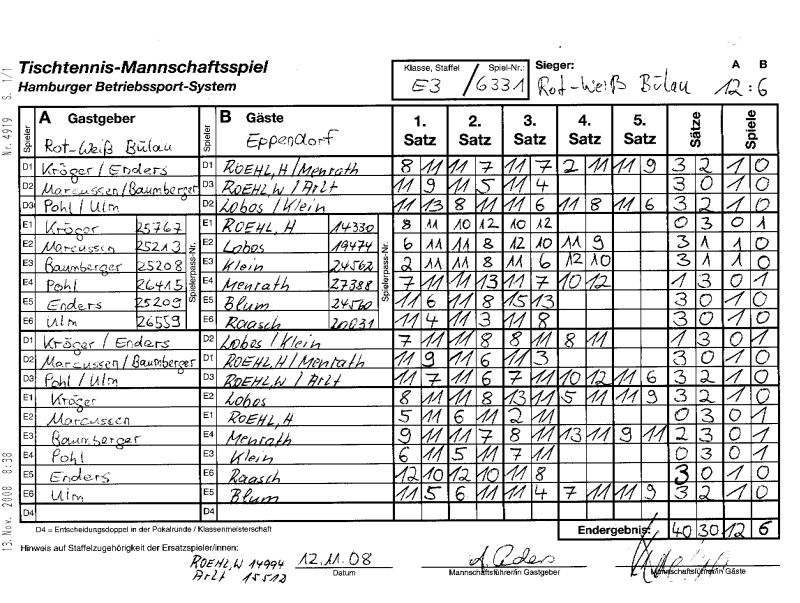 Nr. 4919 S. 1/1
13. Nov. 2008 8:38
Tischtennis-Mannschaftsspiel
Hamburger Betriebssport-System
Klasse, Staffel / Spiel-Nr.:
E3 / 6331
Sieger: A B
Rot-Weiß Bülau 12:6
Spieler A Gastgeber Spieler B Gäste 1. Satz 2. Satz 3. Satz 4. Satz 5. Satz Sätze Spiele
Rot-Weiß Bülau Eppendorf
D1 Kröger / Enders D1 ROEHL, H / Menrath 8 11 11 7 11 7 2 11 11 9 3 2 1 0
D2 Marcussen / Baumberger D3 ROEHL, W / Arlt 11 9 11 5 11 4 3 0 1 0
D3 Pohl / Ulm D2 Lobos / Klein 11 13 8 11 11 6 11 8 11 6 3 2 1 0
Spielerpass-Nr. Spielerpass-Nr.
E1 Kröger 25767 E1 ROEHL, H 14330 8 11 10 12 10 12 0 3 0 1
E2 Marcussen 25213 E2 Lobos 19474 6 11 11 8 12 10 11 9 3 1 1 0
E3 Baumberger 25208 E3 Klein 24562 2 11 11 8 11 6 12 10 3 1 1 0
E4 Pohl 26415 E4 Menrath 27388 7 11 11 13 11 7 10 12 1 3 0 1
E5 Enders 25209 E5 Blum 24560 11 6 11 8 15 13 3 0 1 0
E6 Ulm 26559 E6 Raasch 20031 11 4 11 3 11 8 3 0 1 0
D1 Kröger / Enders D2 Lobos / Klein 7 11 11 8 8 11 8 11 1 3 0 1
D2 Marcussen / Baumberger D1 ROEHL, H / Menrath 11 9 11 6 11 3 3 0 1 0
D3 Pohl / Ulm D3 ROEHL, W / Arlt 11 7 11 6 7 11 10 12 11 6 3 2 1 0
E1 Kröger E2 Lobos 8 11 11 8 13 11 5 11 11 9 3 2 1 0
E2 Marcussen E1 ROEHL, H 5 11 6 11 2 11 0 3 0 1
E3 Baumberger E4 Menrath 9 11 11 7 8 11 13 11 9 11 2 3 0 1
E4 Pohl E3 Klein 6 11 5 11 7 11 0 3 0 1
E5 Enders E6 Raasch 12 10 12 10 11 8 3 0 1 0
E6 Ulm E5 Blum 11 5 6 11 11 4 7 11 11 9 3 2 1 0
D4 D4
D4 = Entscheidungsdoppel in der Pokalrunde / Klassenmeisterschaft Endergebnis: 40 30 12 6
Hinweis auf Staffelzugehörigkeit der Ersatzspieler/innen:
ROEHL, W 14994 12.11.08
Arlt 15512 Datum Mannschaftsführer/in Gastgeber Mannschaftsführer/in Gäste